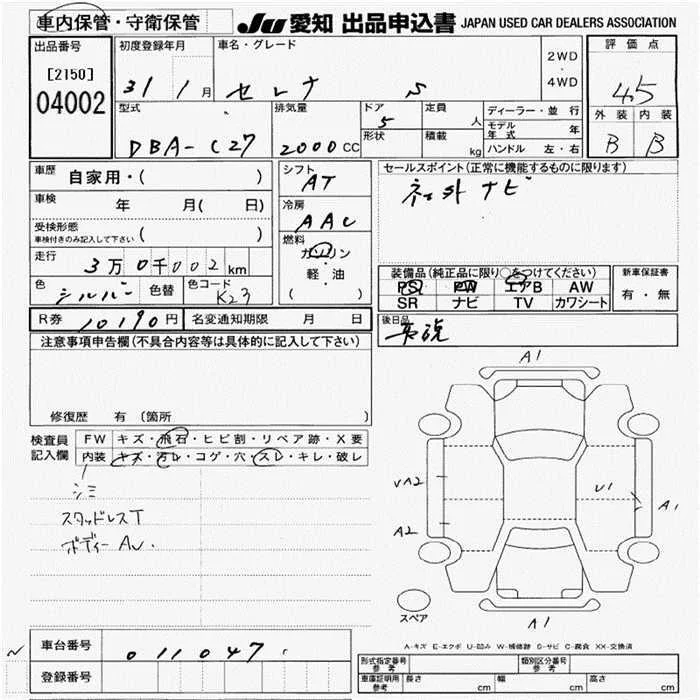 車内保管・守衛保管
JU 愛知 出品申込書 JAPAN USED CAR DEALERS ASSOCIATION
出品番号
[2150]
04002
初度登録年月
31 1月
車名・グレード
セレナ S
2WD
・
4WD
評価点
4.5
外装 内装
B B
型式
DBA-C27
排気量
2000CC
ドア
5
形状
定員
人
積載
kg
ディーラー・並行
モデル年式 年
ハンドル 左・右
車歴
自家用・( )
車検
年 月( 日)
受検形態
車検付きのみ記入して下さい ( )
走行
3万0千002km
色
シルバー
色替
色コード
K23
シフト
AT
冷房
AAC
燃料
ガソリン
・
軽・油
( )
セールスポイント(正常に機能するものに限ります)
社外ナビ
装備品(純正品に限り○をつけてください)
PS PW エアB AW
SR ナビ TV カワシート
新車保証書
有・無
R券 10190円
名変通知期限 月 日
後日品
注意事項申告欄(不具合内容等は具体的に記入して下さい)
修復歴 有 〔箇所 〕
検査員
記入欄
FW キズ・飛石・ヒビ割・リペア跡・X要
内装 キズ・汚レ・コゲ・穴・スレ・キレ・破レ
シミ
スタッドレスT
ボディー AU.
A1
UA2
U1
A1
A2
スペア
A1
A-キズ E-エクボ U-凹み W-補修跡 S-サビ C-腐食 XX-交換済
車台番号
011047
登録番号
型式指定番号
参考
類別区分番号
参考
車庫証明用
参考
長さ cm
幅 cm
高さ cm